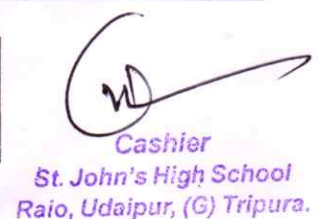 Cashier
St. John's High School
Raio, Udaipur, (G) Tripura.